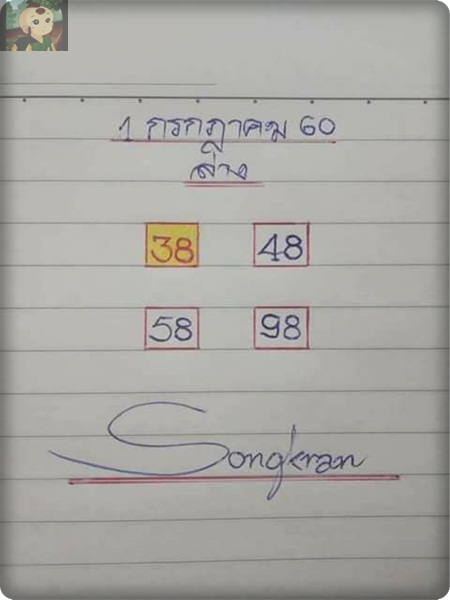 1 กรกฎาคม 60
ล่าง
38 48
58 98
Songkran